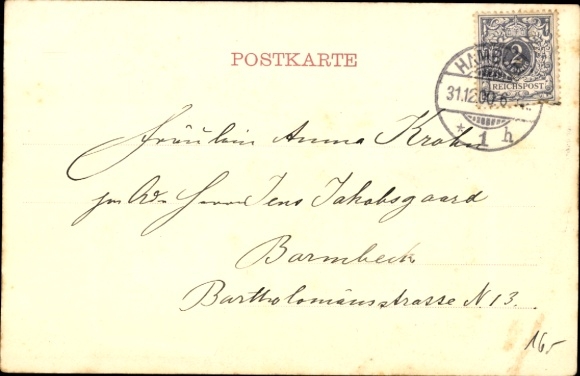 POSTKARTE
2
REICHSPOST
HAMBURG
31.12.00.6
* 1 h
Fräulein Anna Krohn
per Adr. Herrn Jens Jakobsgaard
Barmbeck
Bartholomäusstrasse N 13.
16,-